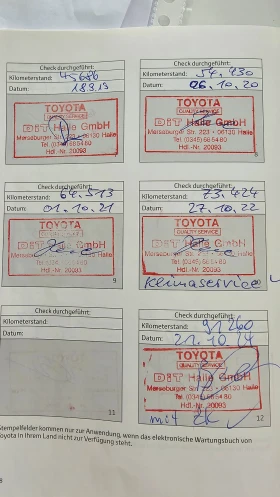 Check durchgeführt:
Kilometerstand: 45686
Datum: 18.9.19
TOYOTA
QUALITY SERVICE
DiT Halle GmbH
Merseburger Str. 223 · 06130 Halle
Tel. (0345) 68 54 80
Hdl.-Nr. 20093
Check durchgeführt:
Kilometerstand: 54.930
Datum: 06.10.20
TOYOTA
QUALITY SERVICE
DiT Halle GmbH
Merseburger Str. 223 · 06130 Halle
Tel. (0345) 68 54 80
Hdl.-Nr. 20093
8
Check durchgeführt:
Kilometerstand: 64.513
Datum: 01.10.21
TOYOTA
DiT Halle GmbH
Merseburger Str. 223 · 06130 Halle
Hdl.-Nr. 20093
9
Check durchgeführt:
Kilometerstand: 73.424
Datum: 27.10.22
TOYOTA
QUALITY SERVICE
DiT Halle GmbH
Merseburger Str. 223 · 06130 Halle
Tel. (0345) 68 54 80
Hdl.-Nr. 20093
Klimaservice
Check durchgeführt:
Kilometerstand:
Datum:
11
Check durchgeführt:
Kilometerstand: 91260
Datum: 21.10.24
TOYOTA
QUALITY SERVICE
DiT Halle GmbH
Merseburger Str. 223 · 06130 Halle
Tel. (0345) 68 54 80
Hdl.-Nr. 20093
mit
12
Stempelfelder kommen nur zur Anwendung, wenn das elektronische Wartungsbuch von
Toyota in Ihrem Land nicht zur Verfügung steht.
8